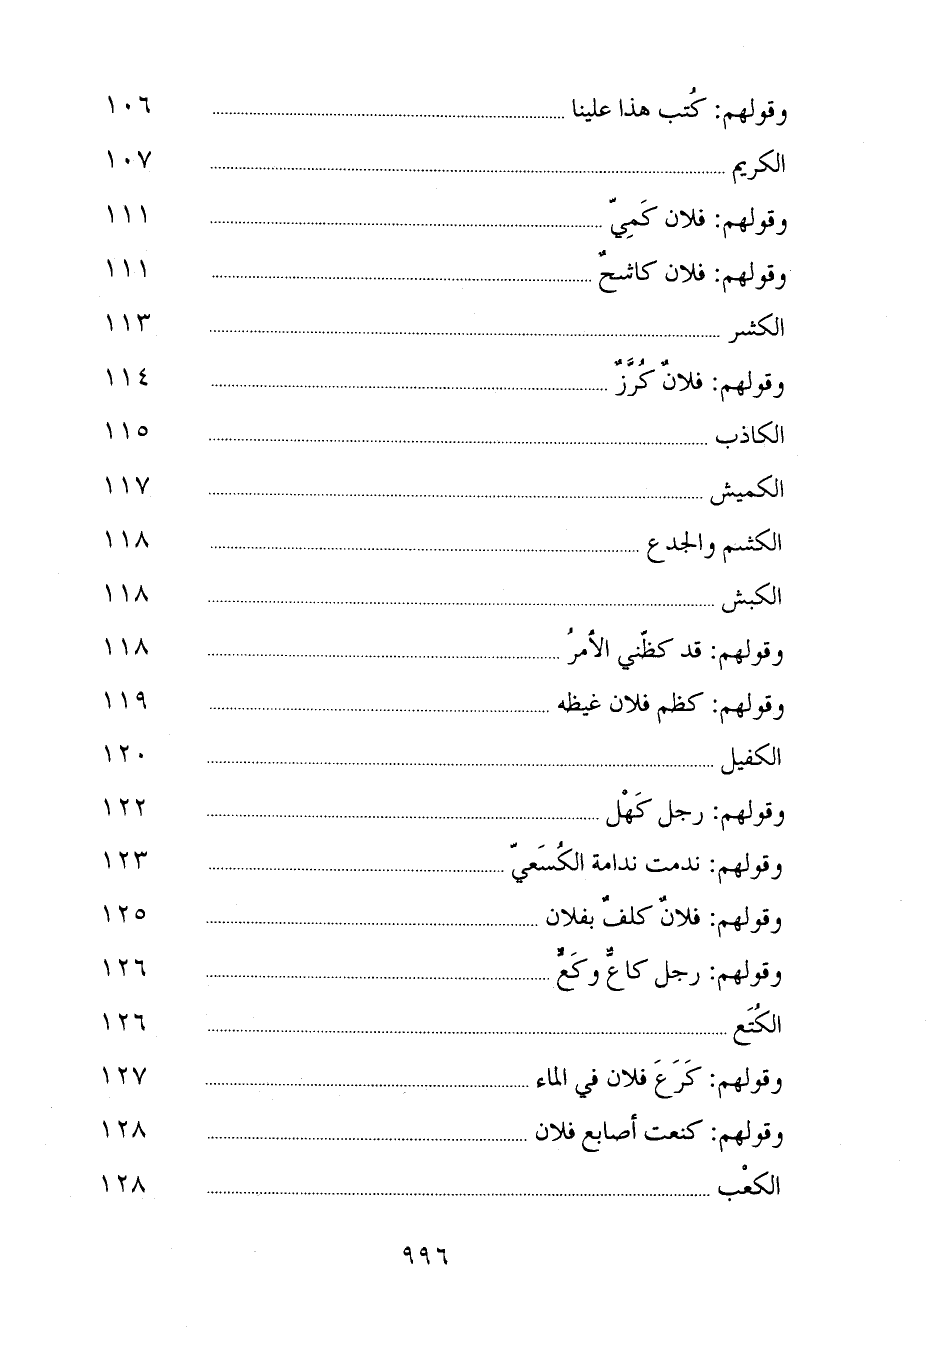 وقولهم: كُتب هذا علينا ........ ١٠٦
الكريم ........ ١٠٧
وقولهم: فلان كَمِيّ ........ ١١١
وقولهم: فلان كاشحٌ ........ ١١١
الكشر ........ ١١٣
وقولهم: فلانٌ كُرَّزٌ ........ ١١٤
الكاذب ........ ١١٥
الكميش ........ ١١٧
الكشم والجدع ........ ١١٨
الكبش ........ ١١٨
وقولهم: قد كظّني الأمرُ ........ ١١٨
وقولهم: كظم فلان غيظه ........ ١١٩
الكفيل ........ ١٢٠
وقولهم: رجل كَهْل ........ ١٢٢
وقولهم: ندمت ندامة الكُسَعيّ ........ ١٢٣
وقولهم: فلانٌ كلفٌ بفلان ........ ١٢٥
وقولهم: رجل كاعٌّ وكَعٌّ ........ ١٢٦
الكُتَع ........ ١٢٦
وقولهم: كَرَعَ فلان في الماء ........ ١٢٧
وقولهم: كنعت أصابع فلان ........ ١٢٨
الكعْب ........ ١٢٨
٩٩٦